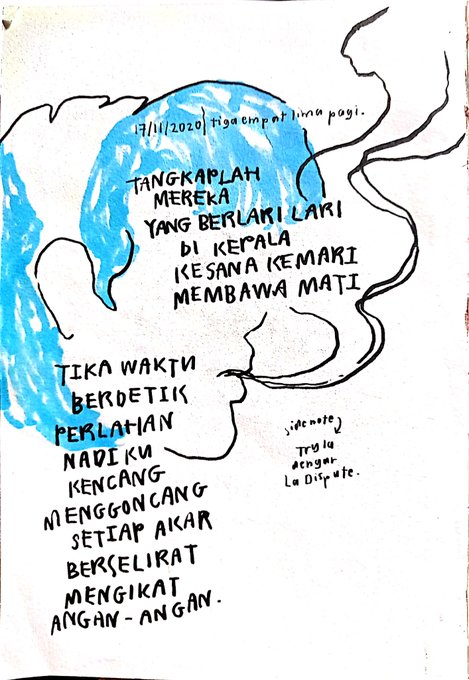 17/11/2020 | tiga empat lima pagi.
TANGKAPLAH
MEREKA
YANG BERLARI LARI
DI KEPALA
KESANA KEMARI
MEMBAWA MATI
TIKA WAKTU
BERDETIK
PERLAHAN
NADI KU
KENCANG
MENGGONCANG
SETIAP AKAR
BERSELIRAT
MENGIKAT
ANGAN-ANGAN.
side note
Try la
dengar
La Dispute.